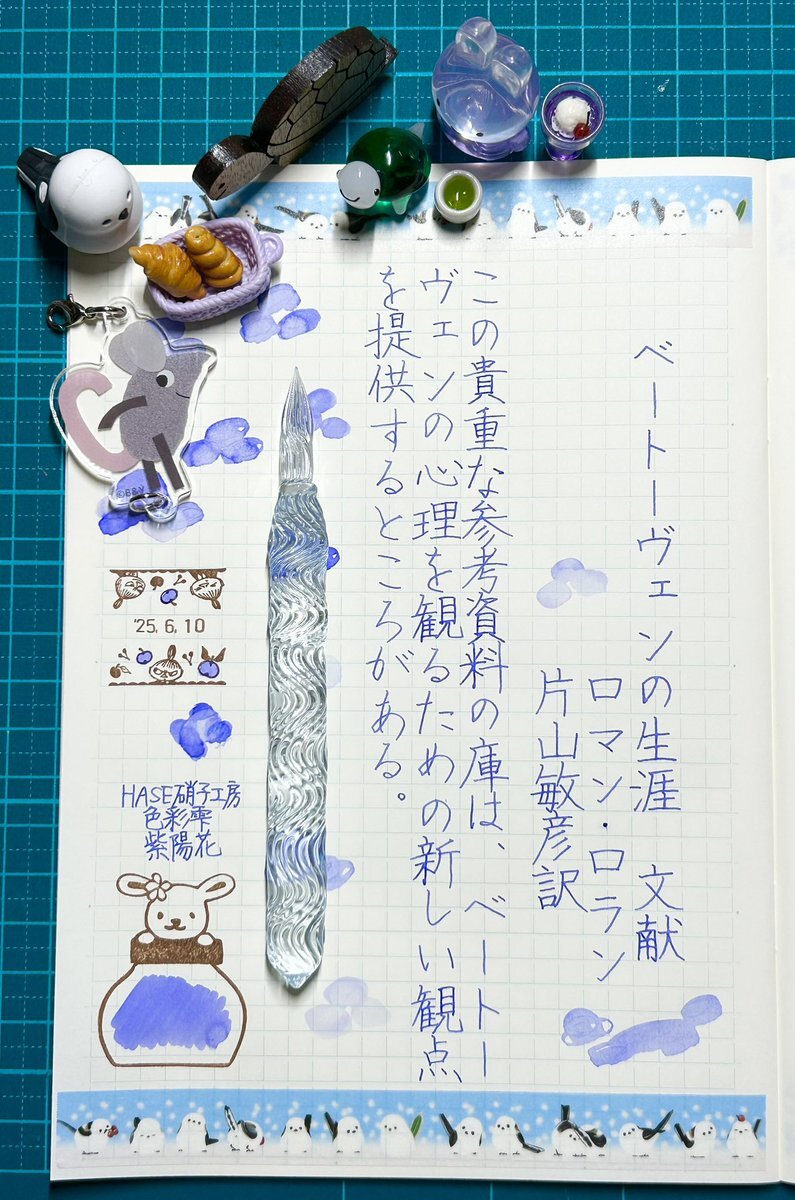 ベートーヴェンの生涯　文献
ロマン・ロラン
片山敏彦訳
この貴重な参考資料の庫は、ベートー
ヴェンの心理を観るための新しい観点
を提供するところがある。
'25.6.10
HASE硝子工房
色彩雫
紫陽花